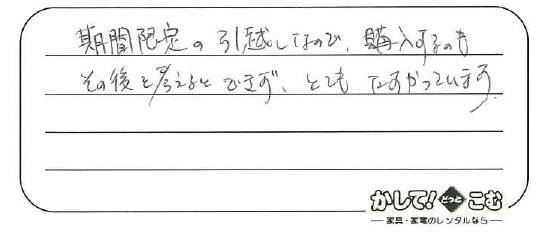 期間限定の引越しなので、購入するのも
その後を考えるとできず、とてもたすかっています。
かして!どっとこむ
家具・家電のレンタルなら